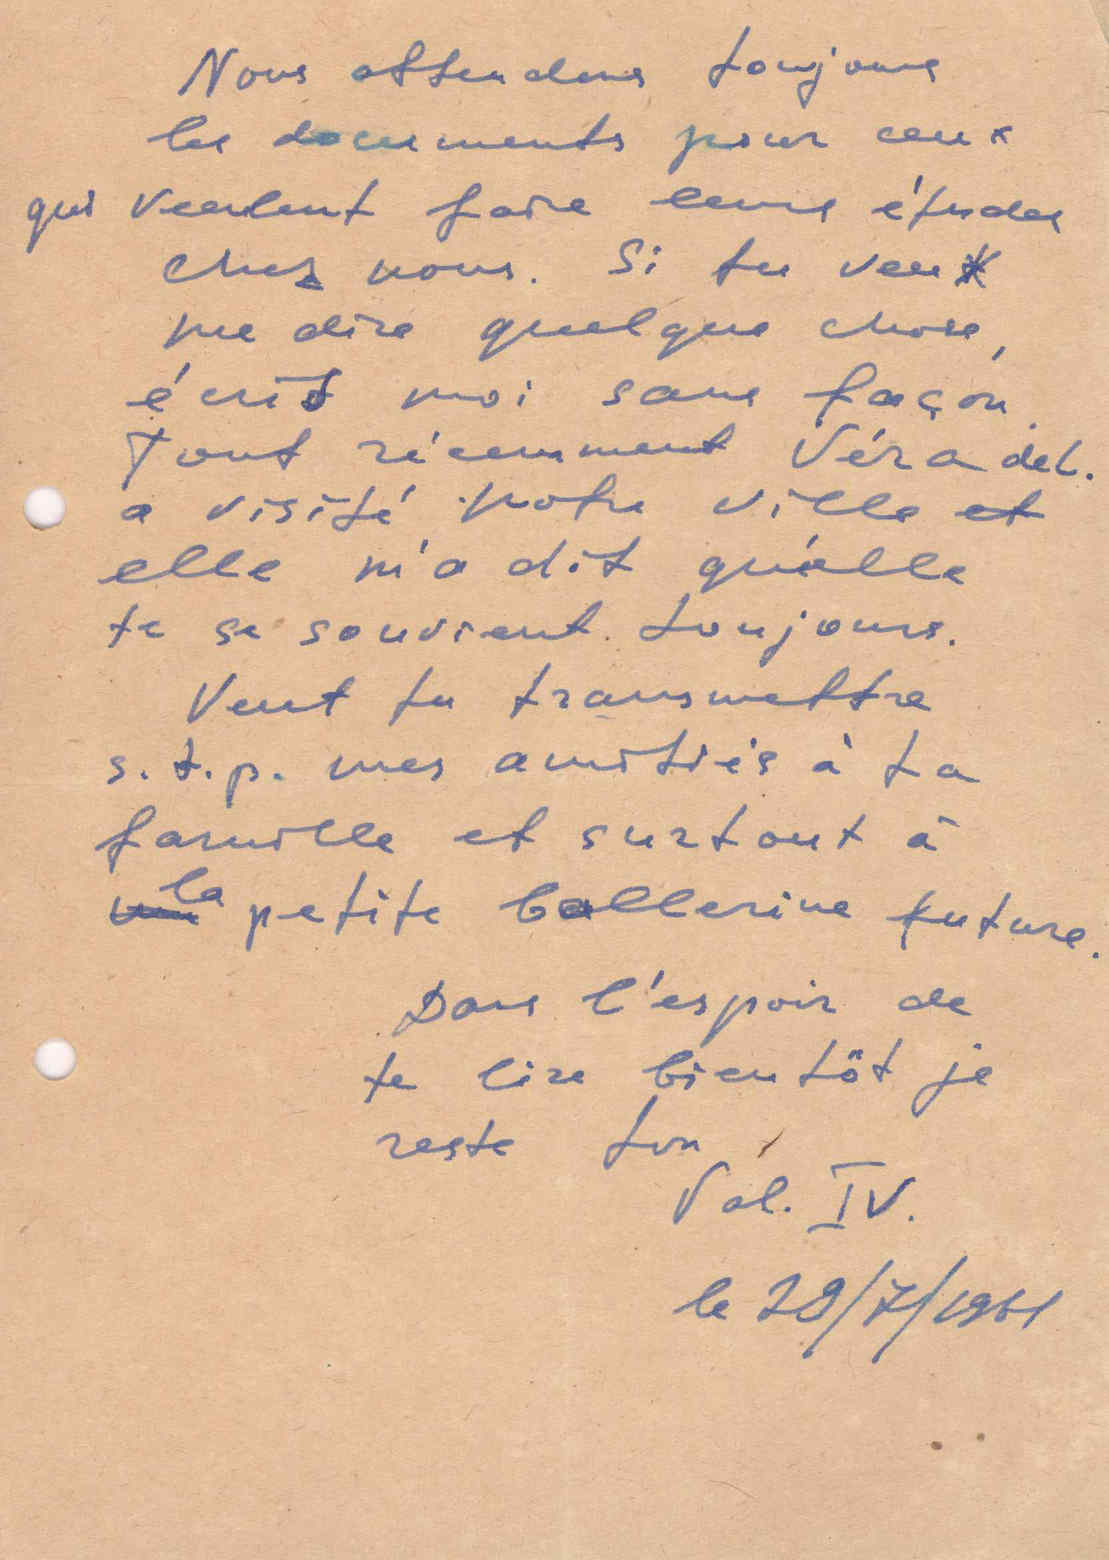 Nous attendons toujours
les documents pour ceux
qui veulent faire leurs études
chez nous. Si tu veux
me dire quelque chose,
écrit moi sans façon.
Tout récemment Véra del.
a visité notre ville et
elle m'a dit qu'elle
te se souvient toujours.
Veut tu transmettre
s.t.p. mes amitiés à ta
famille et surtout à
la petite ballerine future.
Dans l'espoir de
te lire bientôt je
reste ton
Val. IV.
le 29/7/1961